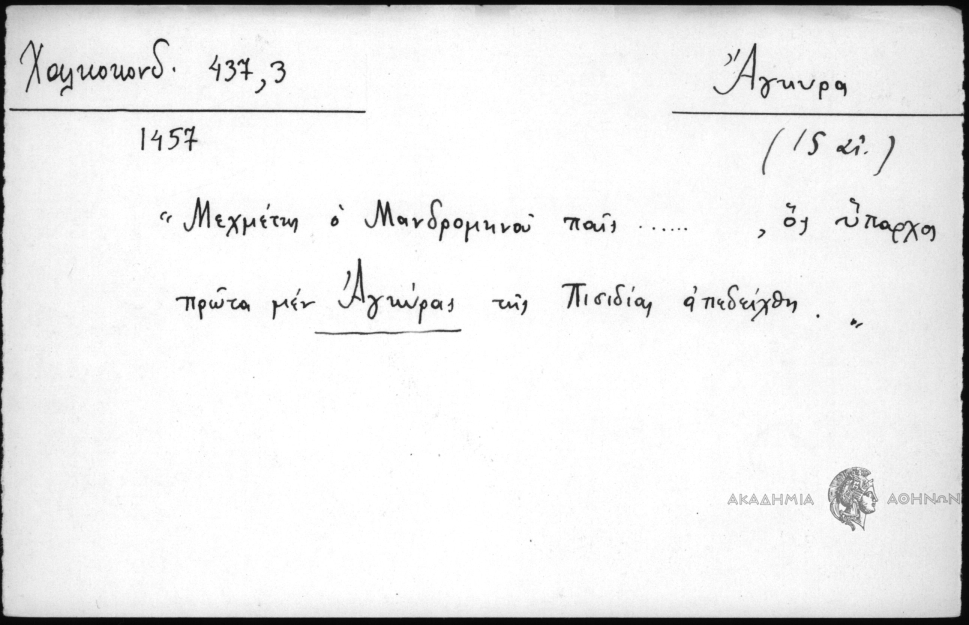 Χαλκοκονδ. 437,3
Ἄγκυρα
1457
(15 αἰ.)
“ Μεχμέτης ὁ Μανδρομηνοῦ παῖς ...... , ὃς ὕπαρχος
πρῶτα μέν Ἀγκύρας τῆς Πισιδίας ἀπεδείχθη. „
ΑΚΑΔΗΜΙΑ ΑΘΗΝΩΝ